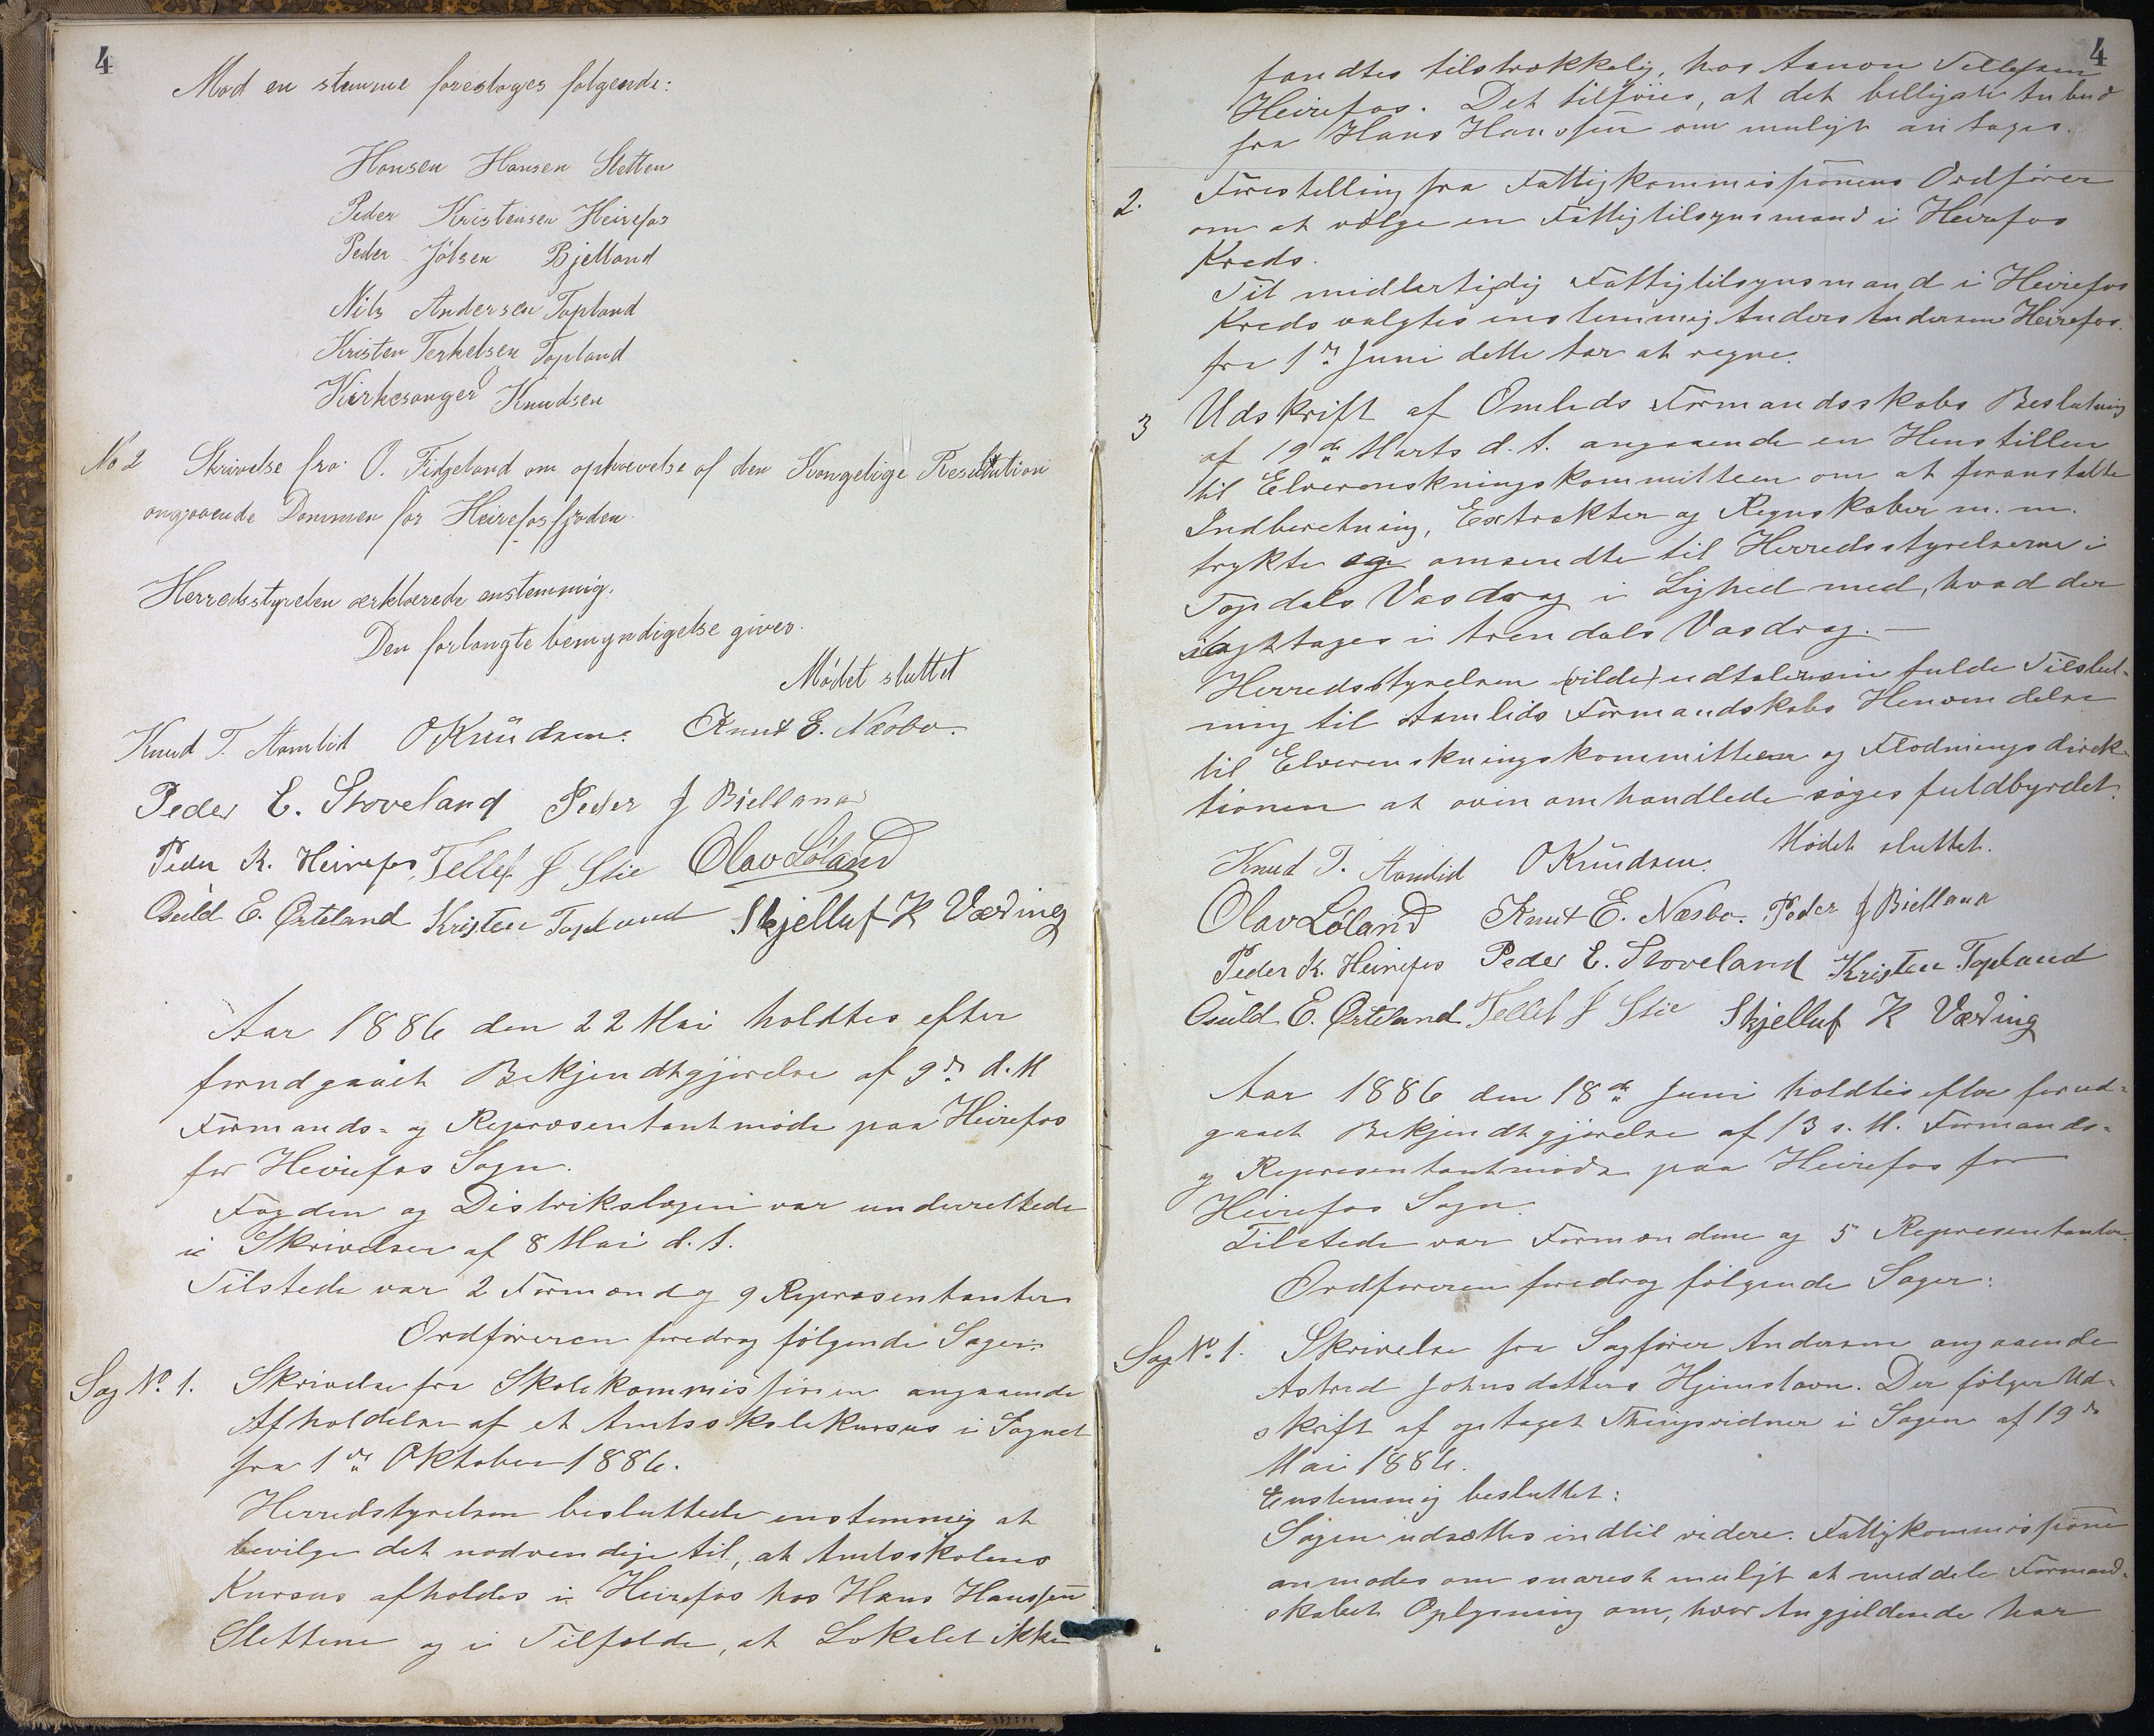 4
Mod en stemme foreslages følgende:
Hansen Hansen Sletten
Peder Kristensen Heirefos
Peder Jølsen Bjelland
Nils Andersen Topland
Kristen Terkelsen Topland
Kirkesanger Knudsen
No 2 Skrivelse fra O. Fidjeland om ophævelse af den Kongelige Resolution
angaaende Dammen for Heirefosfjorden.
Herredsstyrelsen erklærede enstemmig.
Den forlangte bemyndigelse gives.
Mødet sluttet
Knud T. Aamlid OKnudsen. Knut E. Næsbø.
Peder E. Stoveland Peder J Bielland
Peder K. Heirefos, Tellef J Stie Olav Løland
Osuld E. Ørteland Kristen Topland Skjelluf K Væding
Aar 1886 den 22 Mai holdtes efter
forudgaaet Bekjendtgjørelse af 9de d. M
Formands- og Repræsentantmøde paa Heirefos
for Heirefos Sogn.
Fogden og Distrikslægen var underrettede
i Skrivelser af 8 Mai d. A.
Tilstede var 2 Formænd og 9 Repræsentanter
Ordføreren foredrog følgende Sager:
Sag No. 1. Skrivelse fra Skolekommissionen angaaende
Afholdelse af et Amtsskolekursus i Sognet
fra 1ste Oktober 1886.
Herredstyrelsen besluttede enstemmig at
bevilge det nødvendige til, at Amtsskolens
Kursus afholdes i Heirefos hos Hans Hanssen
Slettene og i Tilfælde, at Lokalet ikke
4
fandtes tilstrækkelig, hos Aanon Tellefsen
Heirefos. Det tilføies, at det billigste Anbud
fra Hans Hanssen om muligt antages.
2. Forestilling fra Fattigkommissionens Ordfører
om at vælge en Fattigtilsynsmand i Heirefos
Kreds.
Til midlertidig Fattigtilsynsmand i Heirefos
Kreds valgtes enstemmig Anders Andersen Heirefos.
fra 1ste Juni dette Aar at regne.
3 Udskrift af Omlids Formandsskabs Beslutning
af 19de Marts d. A. angaaende en Henstillen
til Elverenskningskommitteen om at foranstalte
Indberetning, Extrakter og Regnskaber m. m.
trykte og omsendte til Herredsstyrelserne i
Topdals Vasdrag i Lighed med, hvad der
iagttages i Arendals Vasdrag. —
Herredsstyrelsen (vilde) udtaler sin fulde Tilslut-
ning til Aamlids Formandskabs Henvendelse
til Elverenskningskommitteen og Flødningsdirek-
tionen at oven omhandlede søges fuldbyrdet.
Mødet sluttet.
Knud T. Aamlid OKnudsen.
Olav Løland Knut E. Næsbø. Peder J Bielland
Peder K. Heirefos Peder E. Stoveland Kristen Topland
Osuld E. Ørteland Tellef J Stie Skjelluf K Væding
Aar 1886 den 18de Juni holdtes efter forud-
gaaet Bekjendtgjørelse af 13 s. M. Formands-
og Representantmøde paa Heirefos for
Heirefos Sogn.
Tilstede var Formændene og 5 Representanter.
Ordføreren foredrog følgende Sager:
Sag No. 1. Skrivelse fra Sagfører Andersen angaaende
Astred Johnsdatters Hjemstavn. Der følger Ud-
skrift af optaget Thingsvidner i Sagen af 19de
Mai 1886.
Enstemmig besluttet:
Sagen udsættes indtil videre. Fattigkommissionen
anmodes om snarest muligt at meddele Formand-
skabet Oplysning om, hvor Angjeldende har